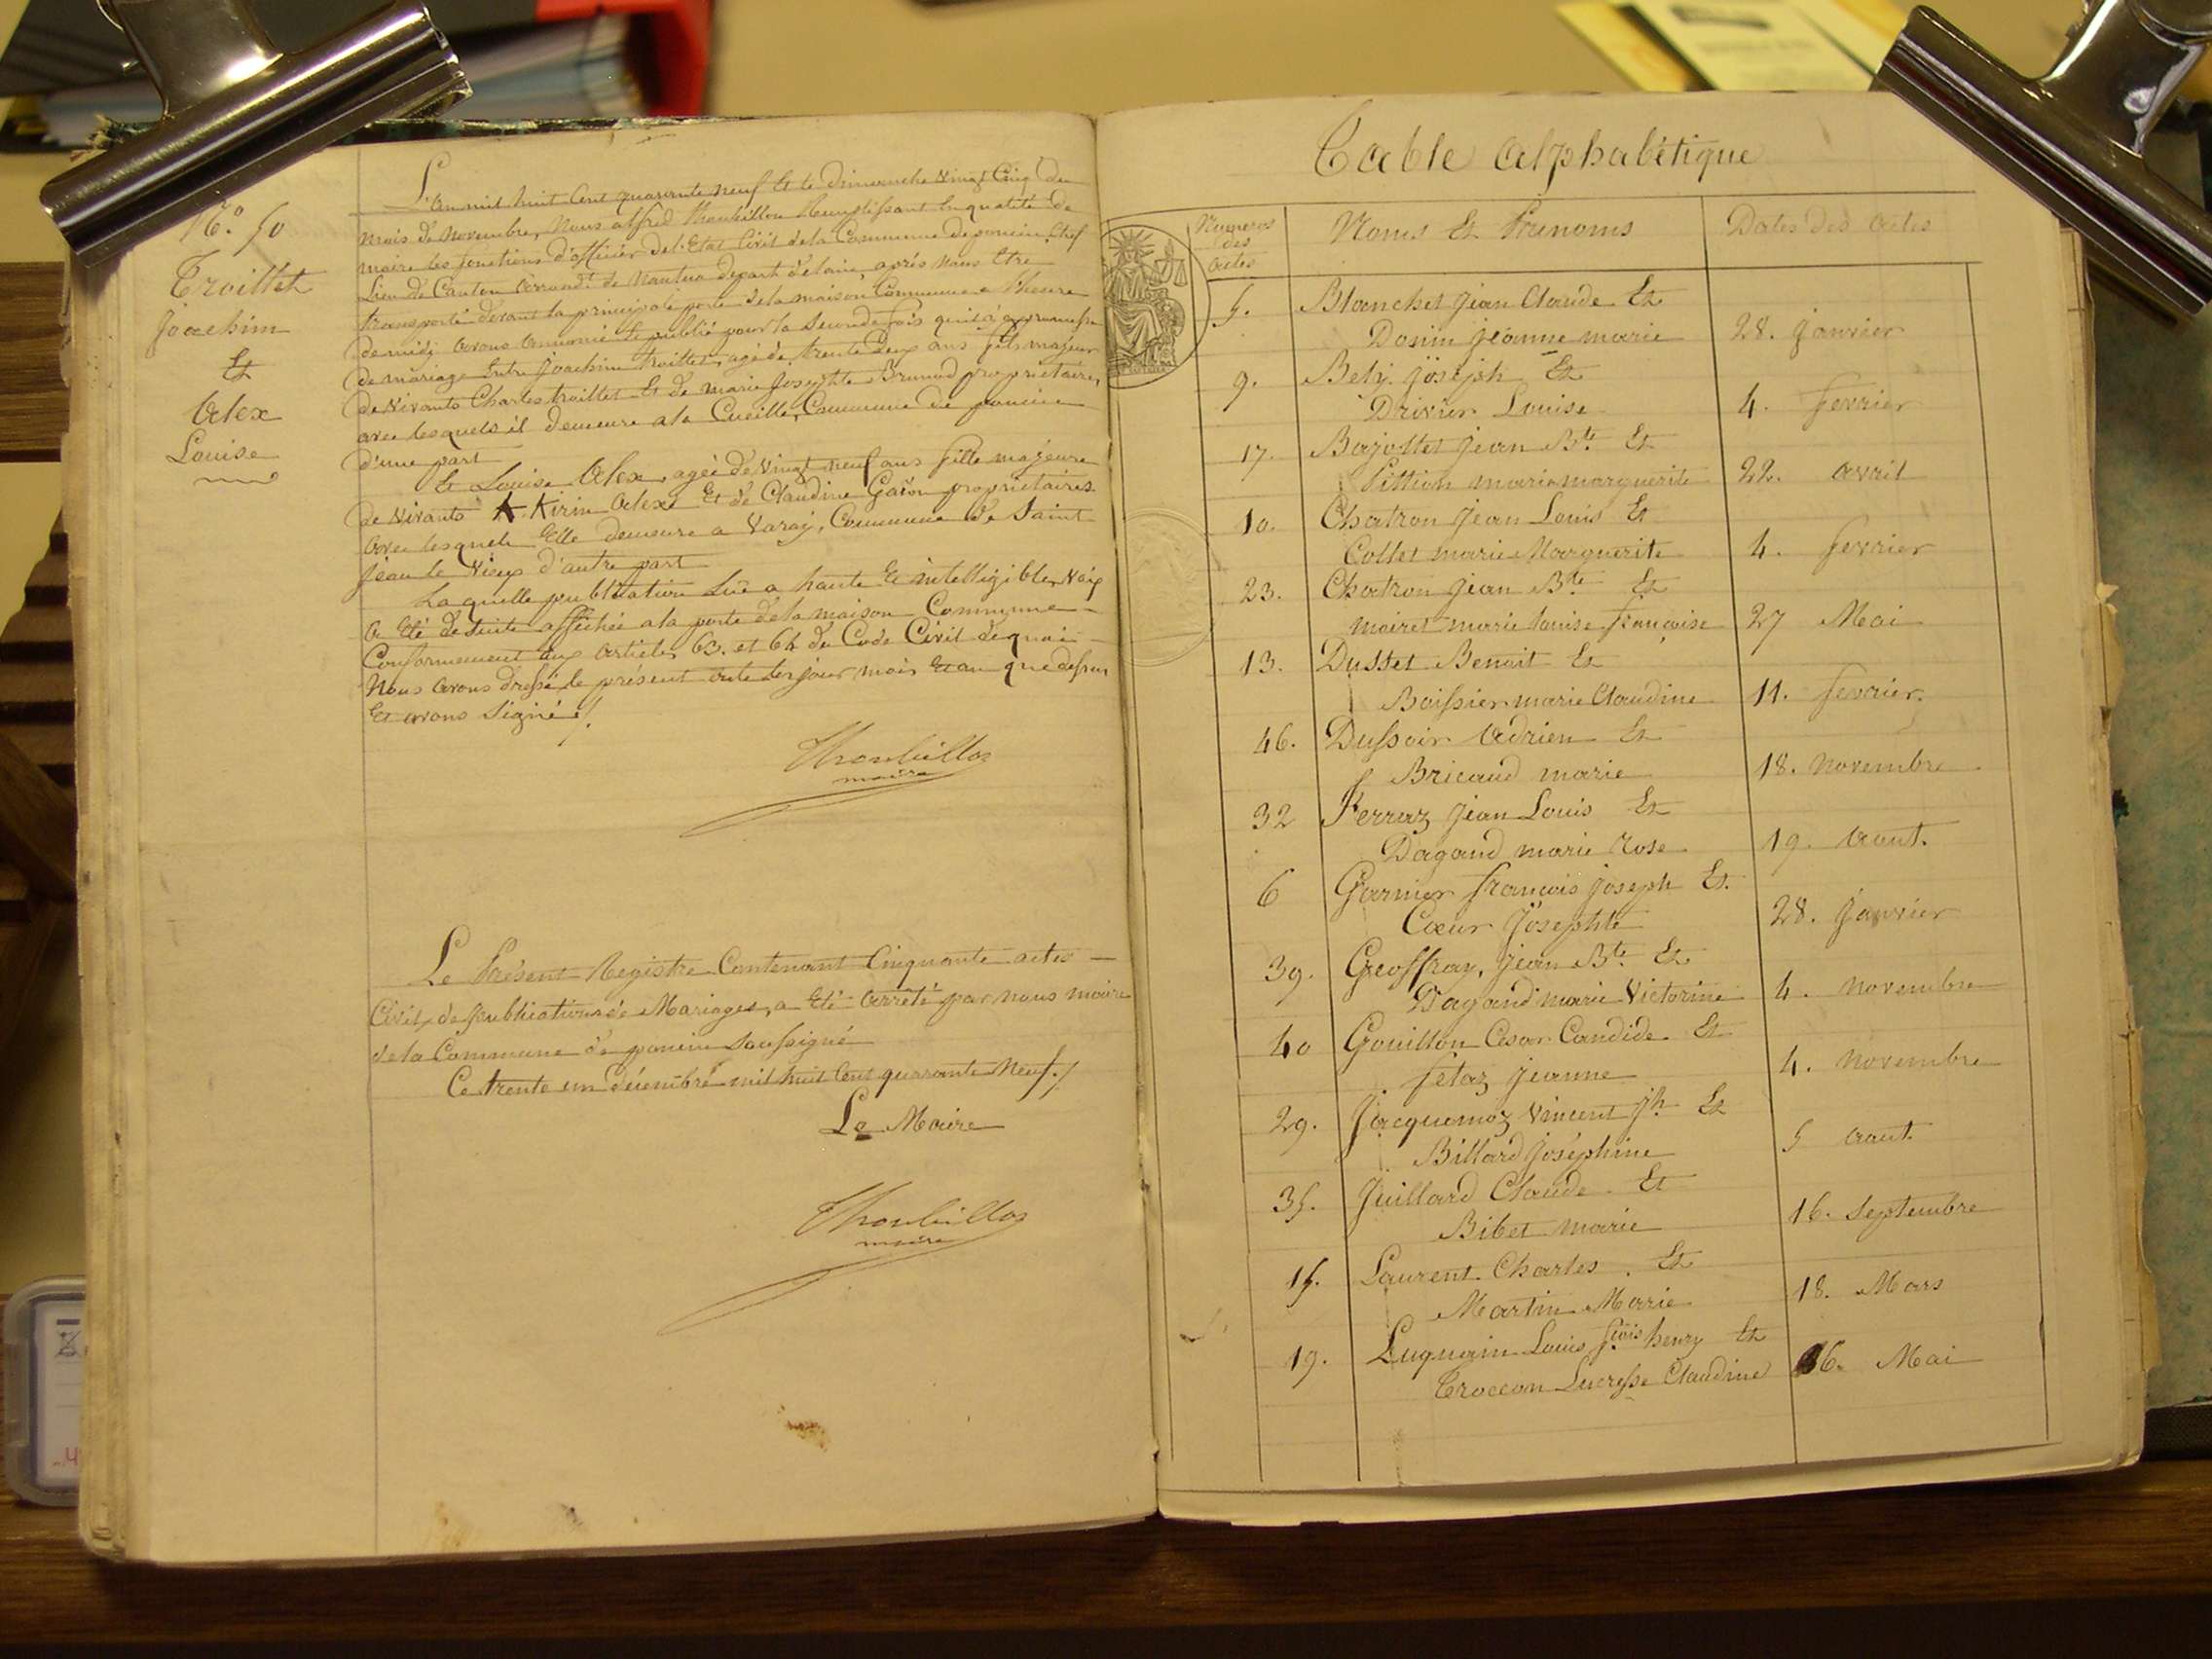 N.o 50
Troillet
Joachim
Et
Alex
Louise
L'an mil huit Cent quarante neuf Et le dimanche vingt Cinq du
mois de novembre, Nous alfred Thoubillon Remplissant En qualité de
maire les fonctions d'officier de l'Etat Civil de la Commune de poncin, Chef
Lieu de Canton arrond.t de Nantua depart. de l'ain, après nous Etre
transporté devant la principale porte de la maison Commune a l'heure
de midi avons annoncé Et publié pour la seconde fois qu'il à promesse
de mariage Entre Joachim troillet, agé de trente deux ans fils majeur
de vivants Charles troillet Et de marie Josephte Brunod proprietaires,
avec lesquels il demeure a la Cueille, Commune de poncin
d'une part
Et Louise Alex, agée de vingt neuf ans fille majeure
de vivants Kirin Alex Et de Claudine Garon proprietaires
avec lesquels Elle demeure a Varay, Commune de Saint
jean le Vieux d'autre part
Laquelle publication lue a haute Et intelligible Voix
a Eté de suite affichée a la porte de la maison Commune
Conformement aux articles 63. et 64 du Code Civil de quoi
Nous avons dressé le présent acte les jour mois Et an que dessus
Et avons signé
Thoubillon
maire
Le Présent Registre Contenant Cinquante actes
Civils de publications de Mariages, a Eté arrêté par nous maire
de la Commune de poncin soussigné
Ce trente un décembre mil huit Cent quarante Neuf
Le Maire
Thoubillon
maire
Table alphabétique
Numeros des actes
Noms Et Prenoms
Dates des actes
5. Blanchet jean Claude Et
Dosim jeanne marie 28. janvier
9. Bely joseph Et
Drivier Louise 4. fevrier
17. Bajollet jean B.te Et
Pittion marie marguerite 22. avril
10. Chatron jean Louis Et
Collet marie Marguerite 4. fevrier
23. Chatron jean B.te Et
Mairet marie Louise françoise 27 Mai
13. Dusset Benoit Et
Boissier marie Claudine 11. fevrier.
46. Dussoir Adrien Et
Bricaud marie 18. novembre
32 Ferraz jean Louis Et
Dagand marie rose 19. aout.
6 Garnier françois joseph Et.
Cœur Josephte 28. janvier
39. Geoffray, jean B.te Et
Dagand marie Victorine 4. novembre
40 Gouillon Cesar Candide Et
fetaz jeanne 4. novembre
29. Jacquemoz Vincent j.h Et
Billard Joséphine 5 aout.
35. Juillard Claude Et
Bibet marie 16. septembre
15. Laurent Charles. Et
Martin Marie 18. Mars
19. Luquain Louis f.çois henry Et
Troccon Lucresse Claudine 6. Mai